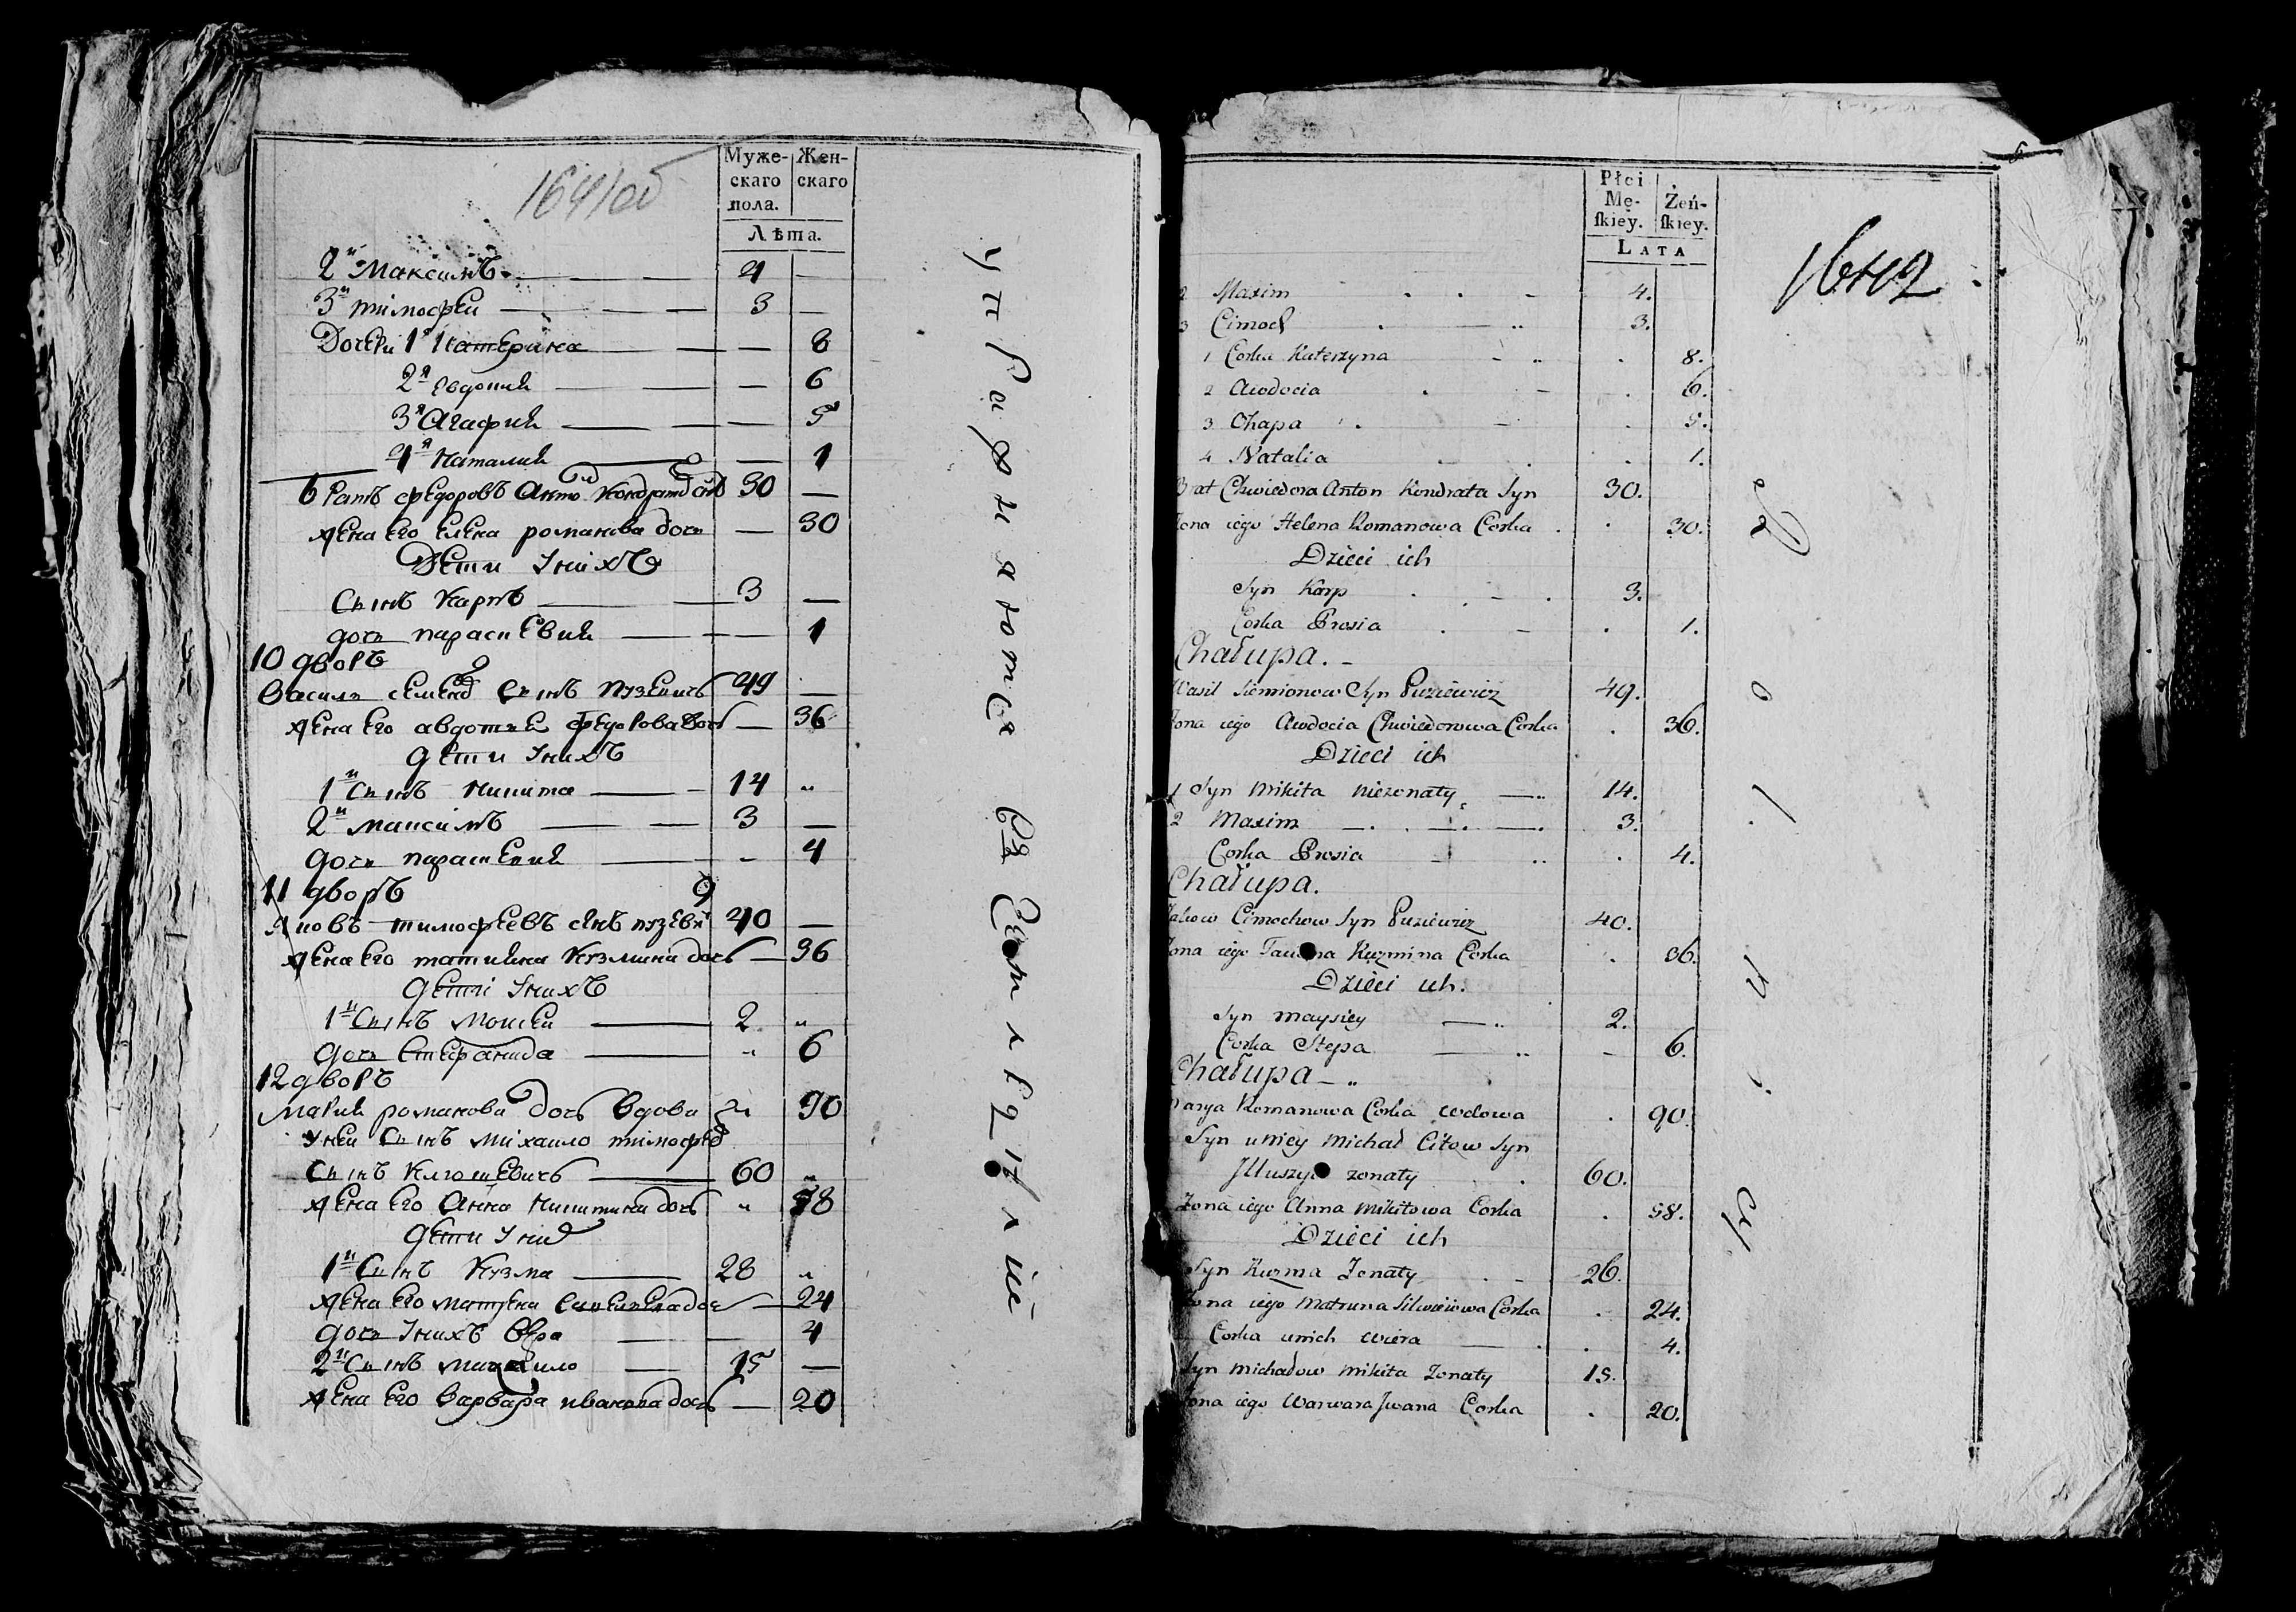 Муже-
скаго
пола.
Жен-
скаго
Лѣта.
2й Максимъ 4 —
3й тімофеи 3 —
Дочери 1я Катерина — 8
2я Евдокия — 6
3я Агафия — 5
4я Наталия — 1
братъ федоровъ Анто Кондрат сынъ 30 —
жена Его Елена романова дочь — 30
Дети Унихъ
Сынъ Карпъ 3 —
дочь парасковия — 1
10 дворъ
Василь семенов сынъ пузевичъ 49 —
жена Его авдотия федорова дочь — 36
дети Унихъ
1й Сынъ Никита 14 "
2й максимъ 3 —
дочь параскевия - 4
11 дворъ 9
Яковъ тимофеевъ сынъ пузеви 40 —
жена Его татияна Кузмина дочь — 36
дети Унихъ
1й Сынъ Моисеи 2 "
дочь Степанида " 6
12 дворъ
Мария романова дочь вдова 90
Унеи Сынъ михаило тимофеев
Сынъ 60 "
жена Его Анна Никитина дочь " 58
дети Уних
1й Сынъ Кузма 28 "
жена Его матрена дочь — 24
дочь Унихъ Вера — 4
2й Сынъ 15 —
жена Его Варвара иванова дочь — 20
Płci
Mę-
ſkiey.
Żeń-
ſkiey.
LATA
1642
2 Maxim 4.
3 Cimoch 3.
1 Corka Katerzyna 8.
2 Awdocia 6.
3 Ohapa 5.
4 Natalia 1.
Brat Chwiedora Anton Kondrata Syn 30.
Zona iego Helena Romanowa Corka 30.
Dzieci ich
Syn Karp 3.
Corka Prosia 1.
Chałupa.
Wasil Siemionow Syn Puziewicz 49.
Zona iego Awdocia Chwiedorowa Corka 36.
Dzieci ich
1 Syn Mikita niezonaty 14.
2 Maxim 3.
Corka Prosia 4.
Chałupa.
Jakow Cimochow Syn Puziewicz 40.
Zona iego Kuzmina Corka 36.
Dzieci ich.
Syn Maysiey 2.
Corka Stepa 6.
Chałupa
Marya Romanowa Corka wdowa 90.
Syn u niey Michał Citow Syn
zonaty 60.
Zona iego Anna Mikitowa Corka 58.
Dzieci ich
Syn Kuzma Zonaty 26.
Zona iego Matruna Corka 24.
Corka unich Wiera 4.
Syn Michałow Mikita Zonaty 15.
Zona iego Warwara Jwana Corka 20.